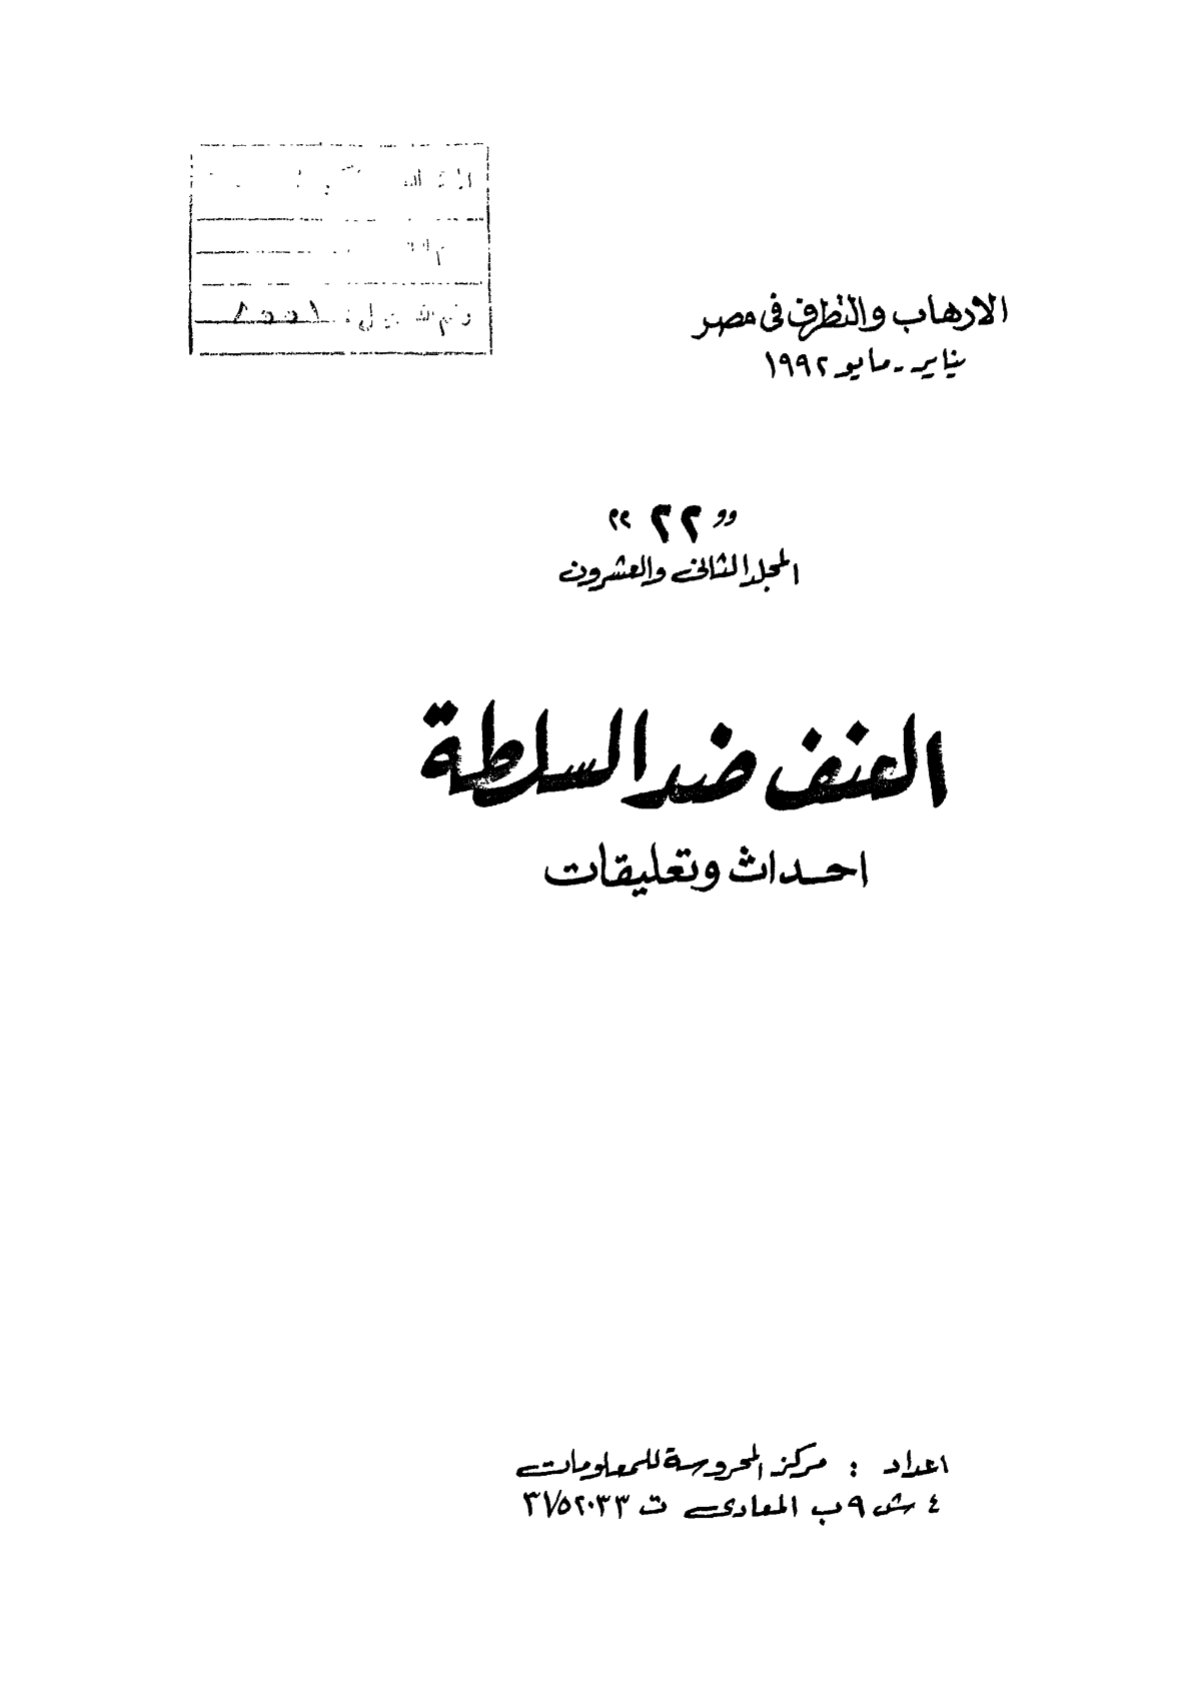 الارهاب والتطرف فى مصر
يناير - مايو ١٩٩٢
"٢٢"
المجلد الثانى والعشرون
العنف ضد السلطة
احداث وتعليقات
اعداد : مركز المحروسة للمعلومات
٤ ش ٩ب المعادى ت ٣٧٥٢٠٣٣